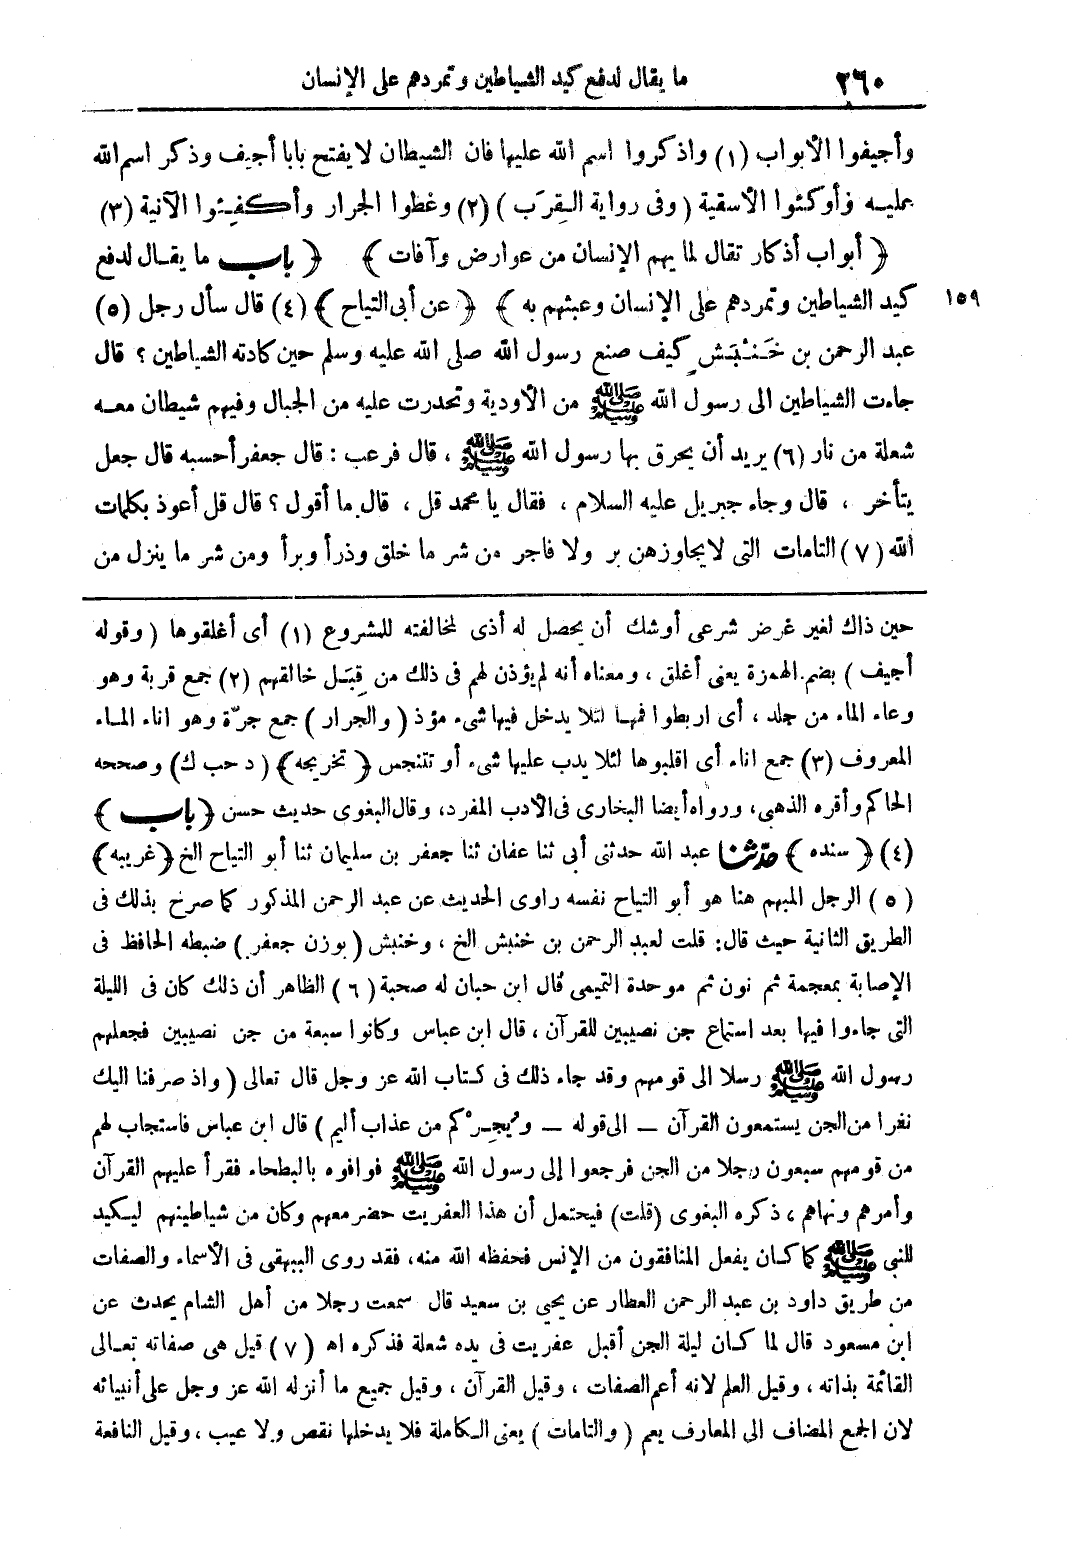 ٢٦٠ ما يقال لدفع كيد الشياطين وتمردهم على الإنسان
وأجيفوا الأبواب (١) واذكروا اسم الله عليها فان الشيطان لا يفتح بابا أجيف وذكر اسم الله
عليه وأوكئوا الأسقية (وفى رواية القِرَب) (٢) وغطوا الجرار وأكفِئوا الآنية (٣)
﴿ أبواب أذكار تقال لما يهم الإنسان من عوارض وآفات ﴾ ﴿ باب ما يقال لدفع
١٥٩ كيد الشياطين وتمردهم على الإنسان وعبثهم به ﴾ ﴿ عن أبى التياح ﴾ (٤) قال سأل رجل (٥)
عبد الرحمن بن خَنْبَش كيف صنع رسول الله صلى الله عليه وسلم حين كادته الشياطين ؟ قال
جاءت الشياطين الى رسول الله ﷺ من الأودية وتحدرت عليه من الجبال وفيهم شيطان معه
شعلة من نار (٦) يريد أن يحرق بها رسول الله ﷺ ، قال فرعب : قال جعفر أحسبه قال جعل
يتأخر ، قال وجاء جبريل عليه السلام ، فقال يا محمد قل ، قال ما أقول ؟ قال قل أعوذ بكلمات
الله (٧) التامات التى لا يجاوزهن بر ولا فاجر من شر ما خلق وذرأ وبرأ ومن شر ما ينزل من
حين ذاك لغير غرض شرعى أوشك أن يحصل له أذى لمخالفته للمشروع (١) أى أغلقوها (وقوله
أجيف) بضم الهمزة يعنى أغلق ، ومعناه أنه لم يؤذن لهم فى ذلك من قِبَل خالقهم (٢) جمع قربة وهو
وعاء الماء من جلد ، أى اربطوا فمها لئلا يدخل فيها شىء مؤذ (والجرار) جمع جرّة وهو اناء الماء
المعروف (٣) جمع اناء أى اقلبوها لئلا يدب عليها شىء أو تتنجس ﴿ تخريجه ﴾ (د حب ك) وصححه
الحاكم وأقره الذهبى، ورواه أيضا البخارى فى الأدب المفرد، وقال البغوى حديث حسن ﴿ باب ﴾
(٤) ﴿ سنده ﴾ حدّثنا عبد الله حدثنى أبى ثنا عفان ثنا جعفر بن سليمان ثنا أبو التياح الخ ﴿ غريبه ﴾
(٥) الرجل المبهم هنا هو أبو التياح نفسه راوى الحديث عن عبد الرحمن المذكور كما صرح بذلك فى
الطريق الثانية حيث قال: قلت لعبد الرحمن بن خنبش الخ ، وخنبش (بوزن جعفر) ضبطه الحافظ فى
الإصابة بمعجمة ثم نون ثم موحدة التميمى قال ابن حبان له صحبة (٦) الظاهر أن ذلك كان فى الليلة
التى جاءوا فيها بعد استماع جن نصيبين للقرآن ، قال ابن عباس وكانوا سبعة من جن نصيبين فجعلهم
رسول الله ﷺ رسلا الى قومهم وقد جاء ذلك فى كتاب الله عز وجل قال تعالى (واذ صرفنا اليك
نفرا من الجن يستمعون القرآن — الى قوله — ويُجِرْكم من عذاب أليم) قال ابن عباس فاستجاب لهم
من قومهم سبعون رجلا من الجن فرجعوا إلى رسول الله ﷺ فوافوه بالبطحاء فقرأ عليهم القرآن
وأمرهم ونهاهم ، ذكره البغوى (قلت) فيحتمل أن هذا العفريت حضر معهم وكان من شياطينهم ليكيد
للنبى ﷺ كما كان يفعل المنافقون من الإنس فحفظه الله منه، فقد روى البيهقى فى الأسماء والصفات
من طريق داود بن عبد الرحمن العطار عن يحيى بن سعيد قال سمعت رجلا من أهل الشام يحدث عن
ابن مسعود قال لما كان ليلة الجن أقبل عفريت فى يده شعلة فذكره اه (٧) قيل هى صفاته تعالى
القائمة بذاته ، وقيل العلم لانه أعم الصفات ، وقيل القرآن ، وقيل جميع ما أنزله الله عز وجل على أنبيائه
لان الجمع المضاف الى المعارف يعم (والتامات) يعنى الكاملة فلا يدخلها نقص ولا عيب ، وقيل النافعة